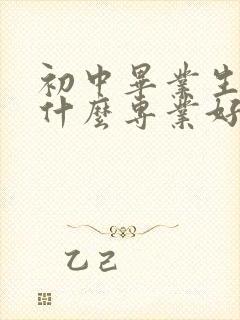 初中畢業生
什麼專業好
乙己